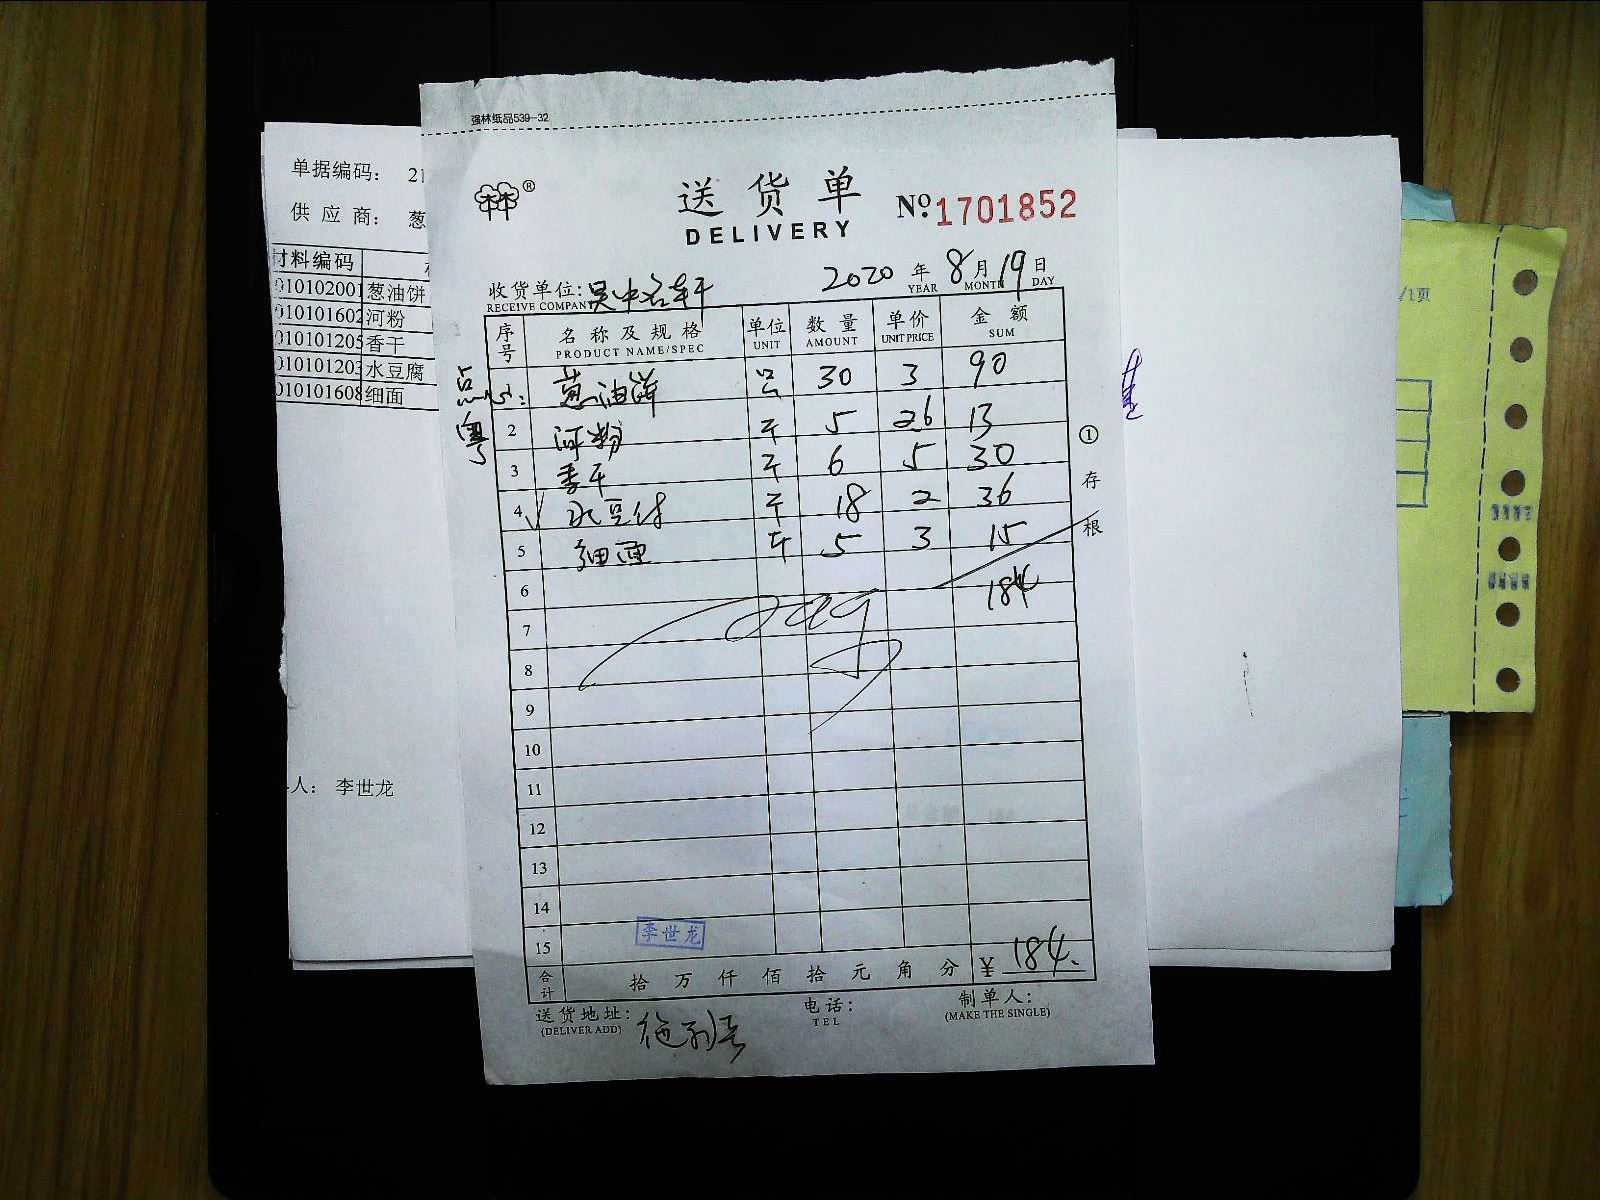 强林纸品539-32
单据编码： 21
供 应 商： 葱
材料编码
010102001 葱油饼
010101602 河粉
010101205 香干
010101203 水豆腐
010101608 细面
人： 李世龙
/1页
®
送货单
DELIVERY
No. 1701852
2020 年 8 月 19 日
YEAR MONTH DAY
收货单位：吴中名轩
RECEIVE COMPANY
序号 名称及规格 单位 数量 单价 金额
PRODUCT NAME/SPEC UNIT AMOUNT UNIT PRICE SUM
点心
粤
1 葱油饼 30 3 90
2 河粉 斤 5 26 13
3 香干 斤 6 5 30
4 水豆付 斤 18 2 36
5 细面 斤 5 3 15
6 184
7
8
9
10
11
12
13
14
15
李世龙
合计 拾 万 仟 佰 拾 元 角 分 ¥ 184.
① 存根
送货地址：
(DELIVER ADD)
电话：
TEL
制单人：
(MAKE THE SINGLE)